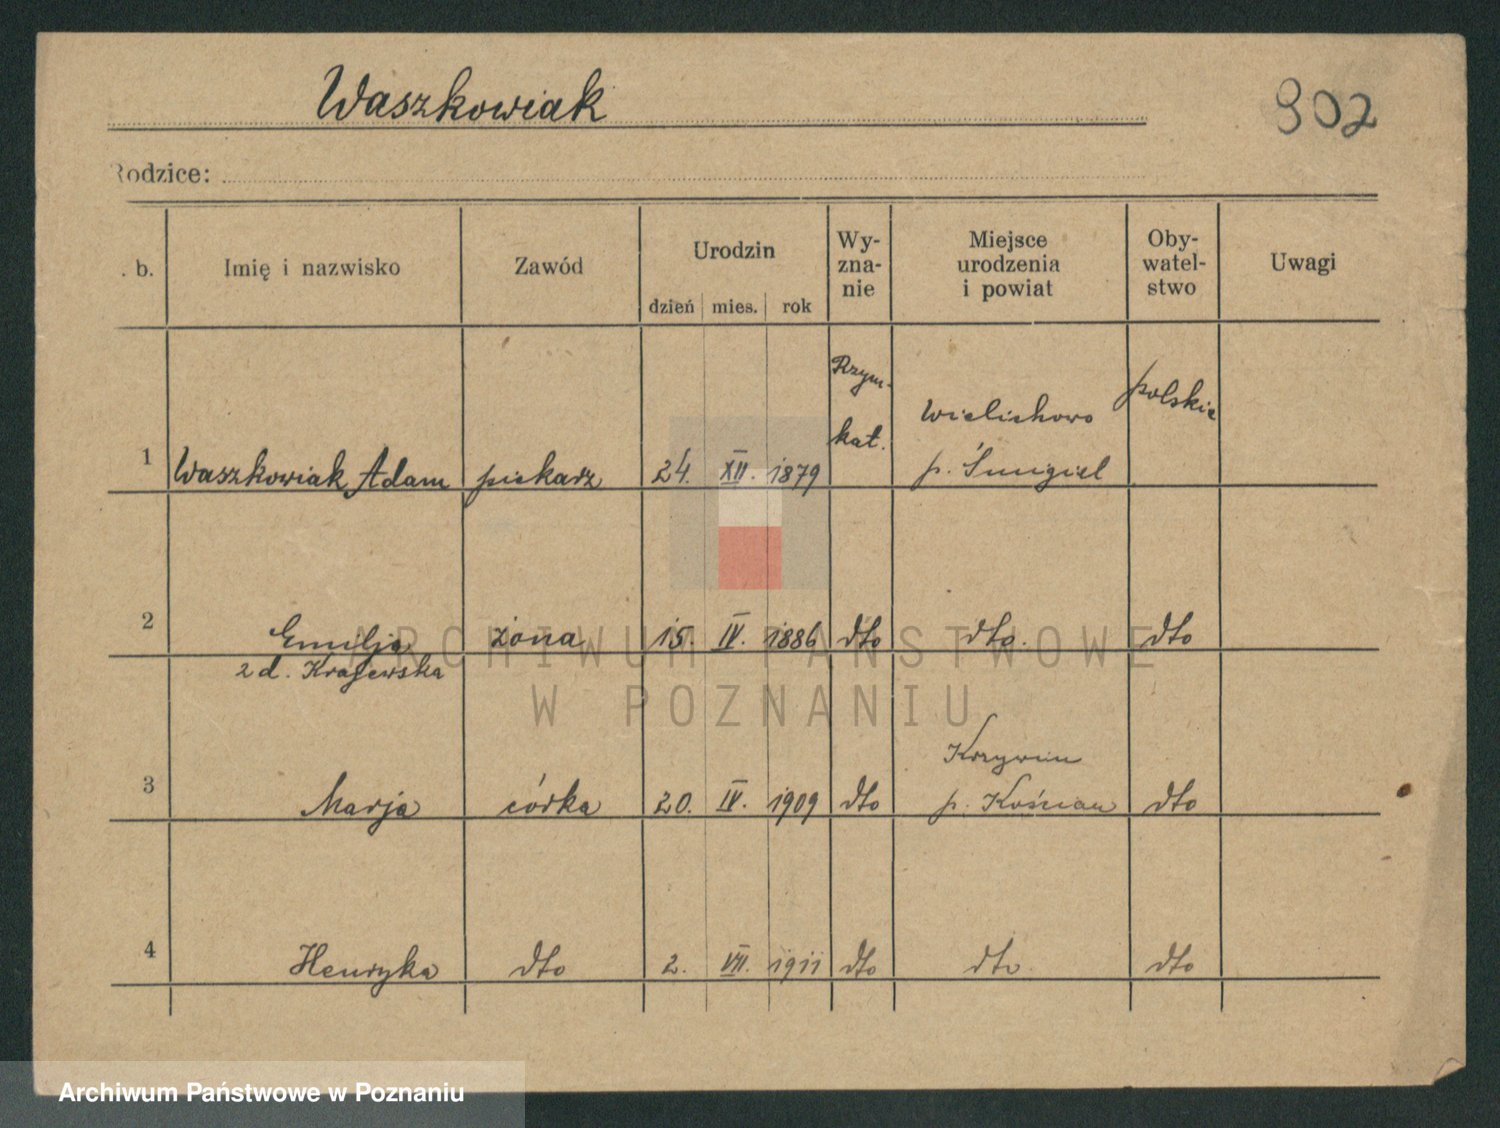 Waszkowiak
902
Rodzice:
. b.
Imię i nazwisko
Zawód
Urodzin
dzień mies. rok
Wy-
zna-
nie
Miejsce
urodzenia
i powiat
Oby-
watel-
stwo
Uwagi
1 Waszkowiak Adam piekarz 24. XII. 1879
Rzym.
kat.
Wielichowo
p. Śmigiel
polskie
2 Emilja żona 15. IV. 1886 dto dto. dto
z d. Krajewska
Krzywiń
3 Marja córka 20. IV. 1909 dto p. Kościan dto
4 Henryka dto 2. VII. 1911 dto dto. dto
ARCHIWUM PAŃSTWOWE
W POZNANIU
Archiwum Państwowe w Poznaniu